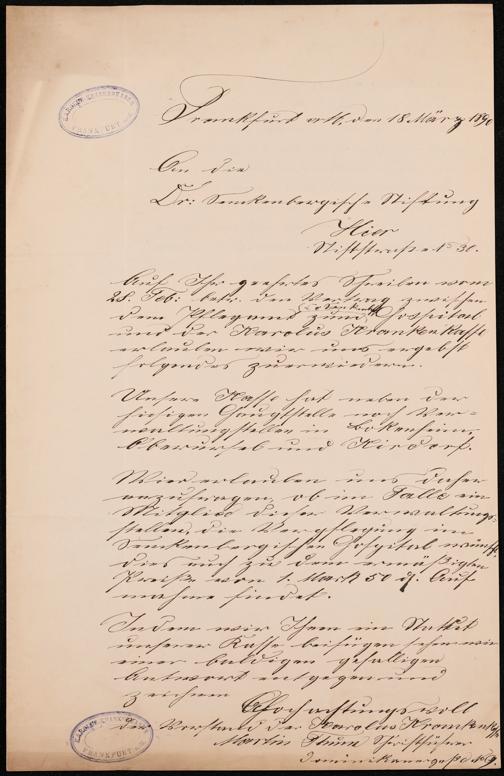 Frankfurt a/M, den 18 März 1890
An die
Dr: Senckenbergische Stiftung
Hier
Stiftstrasse No 30.
Auf Ihr geehrtes Schreiben vom
28. Feb: betr. den Vertrag zwischen
dem Pflegamt zum Hospital
und der Karolus Krankenkasse
erlauben wir uns ergebst
folgendes zu erwiedern.
Unsere Kasse hat neben der
hiesigen Hauptstelle noch Ver-
waltungstellen in Bokenheim,
Oberursel und Kirdorf.
Wir erlauben uns daher
anzufragen, ob im Falle ein
Mitglied dieser Verwaltungs-
stellen, die Verpflegung im
Senckenbergischen Hospital wünscht,
dies auch zu dem ermäßigten
Preiße von 1. Mark 50 d. Auf-
nahme findet.
Indem wir Ihnen ein Statut
unserer Kasse beifügen sehen wir
einer baldigen gefälligen
Antwort entgegen und
zeichnen
Hochachtungsvoll
der Vorstand der Karolus Krankenkasse
Martin Schriftführer
Dominikanergasse
FRANKFURT a/M
FRANKFURT a/M